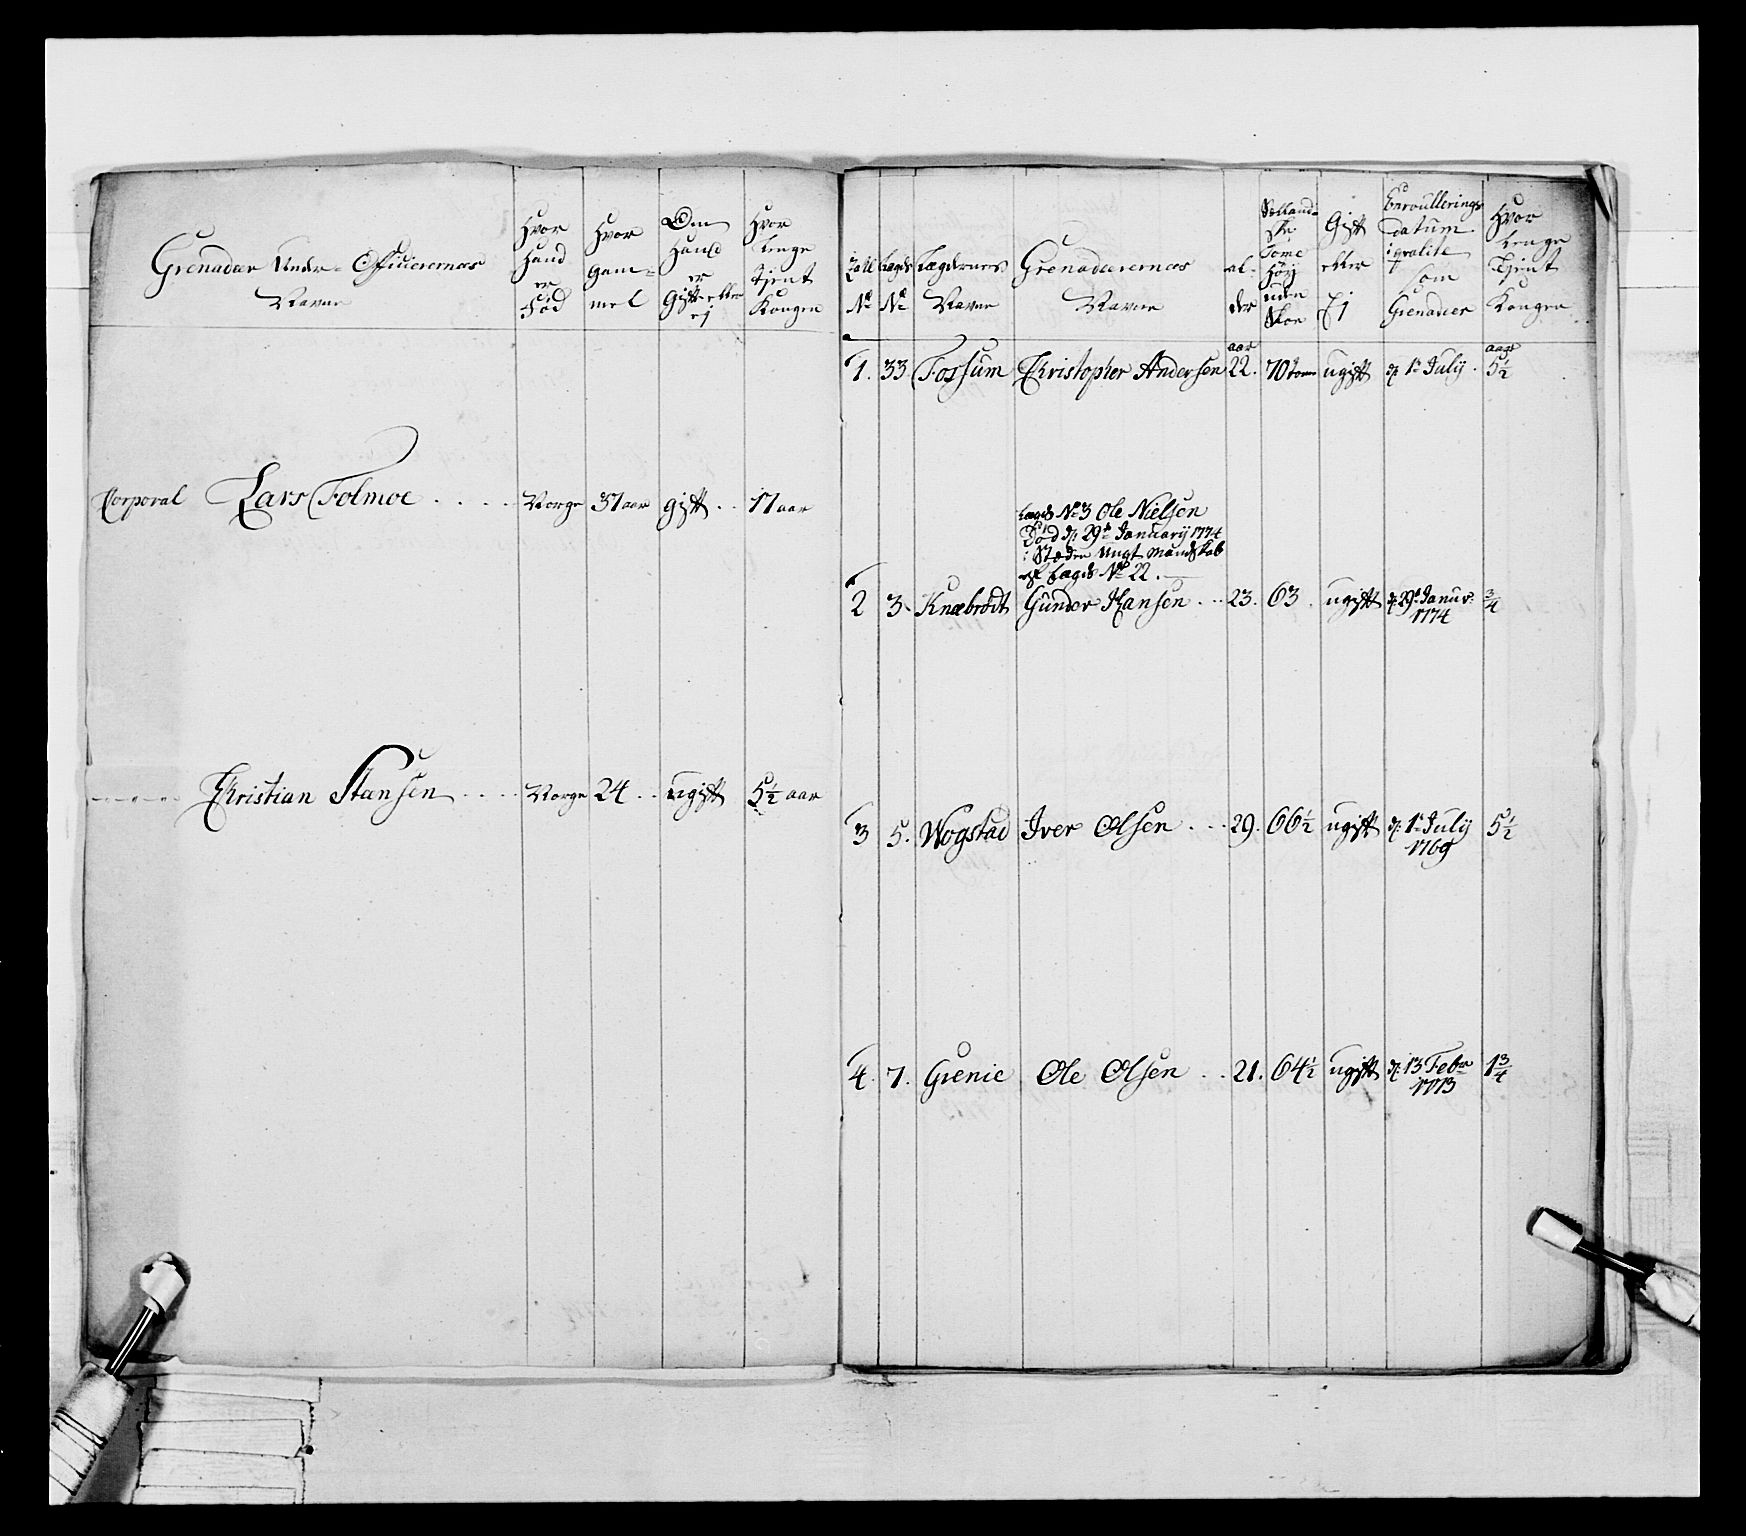 Grenadeer Under-Officierernes
Navne
Hvor
Hand
er
Fód
Hvor
gam-
mel
Om
Hand
er
Gift eller
ej
Hvor
Lenge
Tjent
Kongen
Corporal Lars Folmoe . . . . . Norge 37 aar gift . . 17 aar
Christian Hansen . . . . Norge 24 . . ugift 5½ aar
Zall
No
Lægds
No
Lægdernes
Navne
Grenadeerernes
Navne
al-
der
Sælland-
ske
Tome
Høy
uden
Skoe
Gift
eller
Ej
Enroullerings
datum
i qvalite
som
Grenadeer
Hvor
Lenge
Tjent
Kongen
aar aar
1. 33 Fossum Christopher Andersen 22. 70 tom ugift d. 1e July . 5½
Lægds No 3 Ole Nielsen
Død d. 29e January 1774
i Steden Ungt Mandskab
af Lægds No 22.
2 3. Knæbrödt Gunder Hansen . . 23. 63 . ugift d. 29e Janua: ¾
1774
3 5. Wogstad Iver Olsen . . . 29. 66½ ugift d. 1e July 5½
1769
4. 7. Grenie Ole Olsen . . 21. 64½ ugift d. 13 Febr 1¾
1773